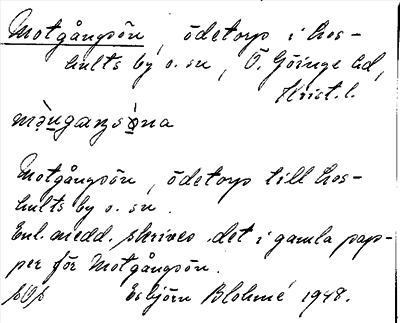 Motgångsön, ödetorp i Los-
hults by o. sn, Ö. Göinge hd,
Krist. l.
Motgångsön, ödetorp till Los-
hults by o. sn.
Enl. medd. skrives det i gamla pap-
per för Motgångsön.
Esbjörn Blohmé 1948.